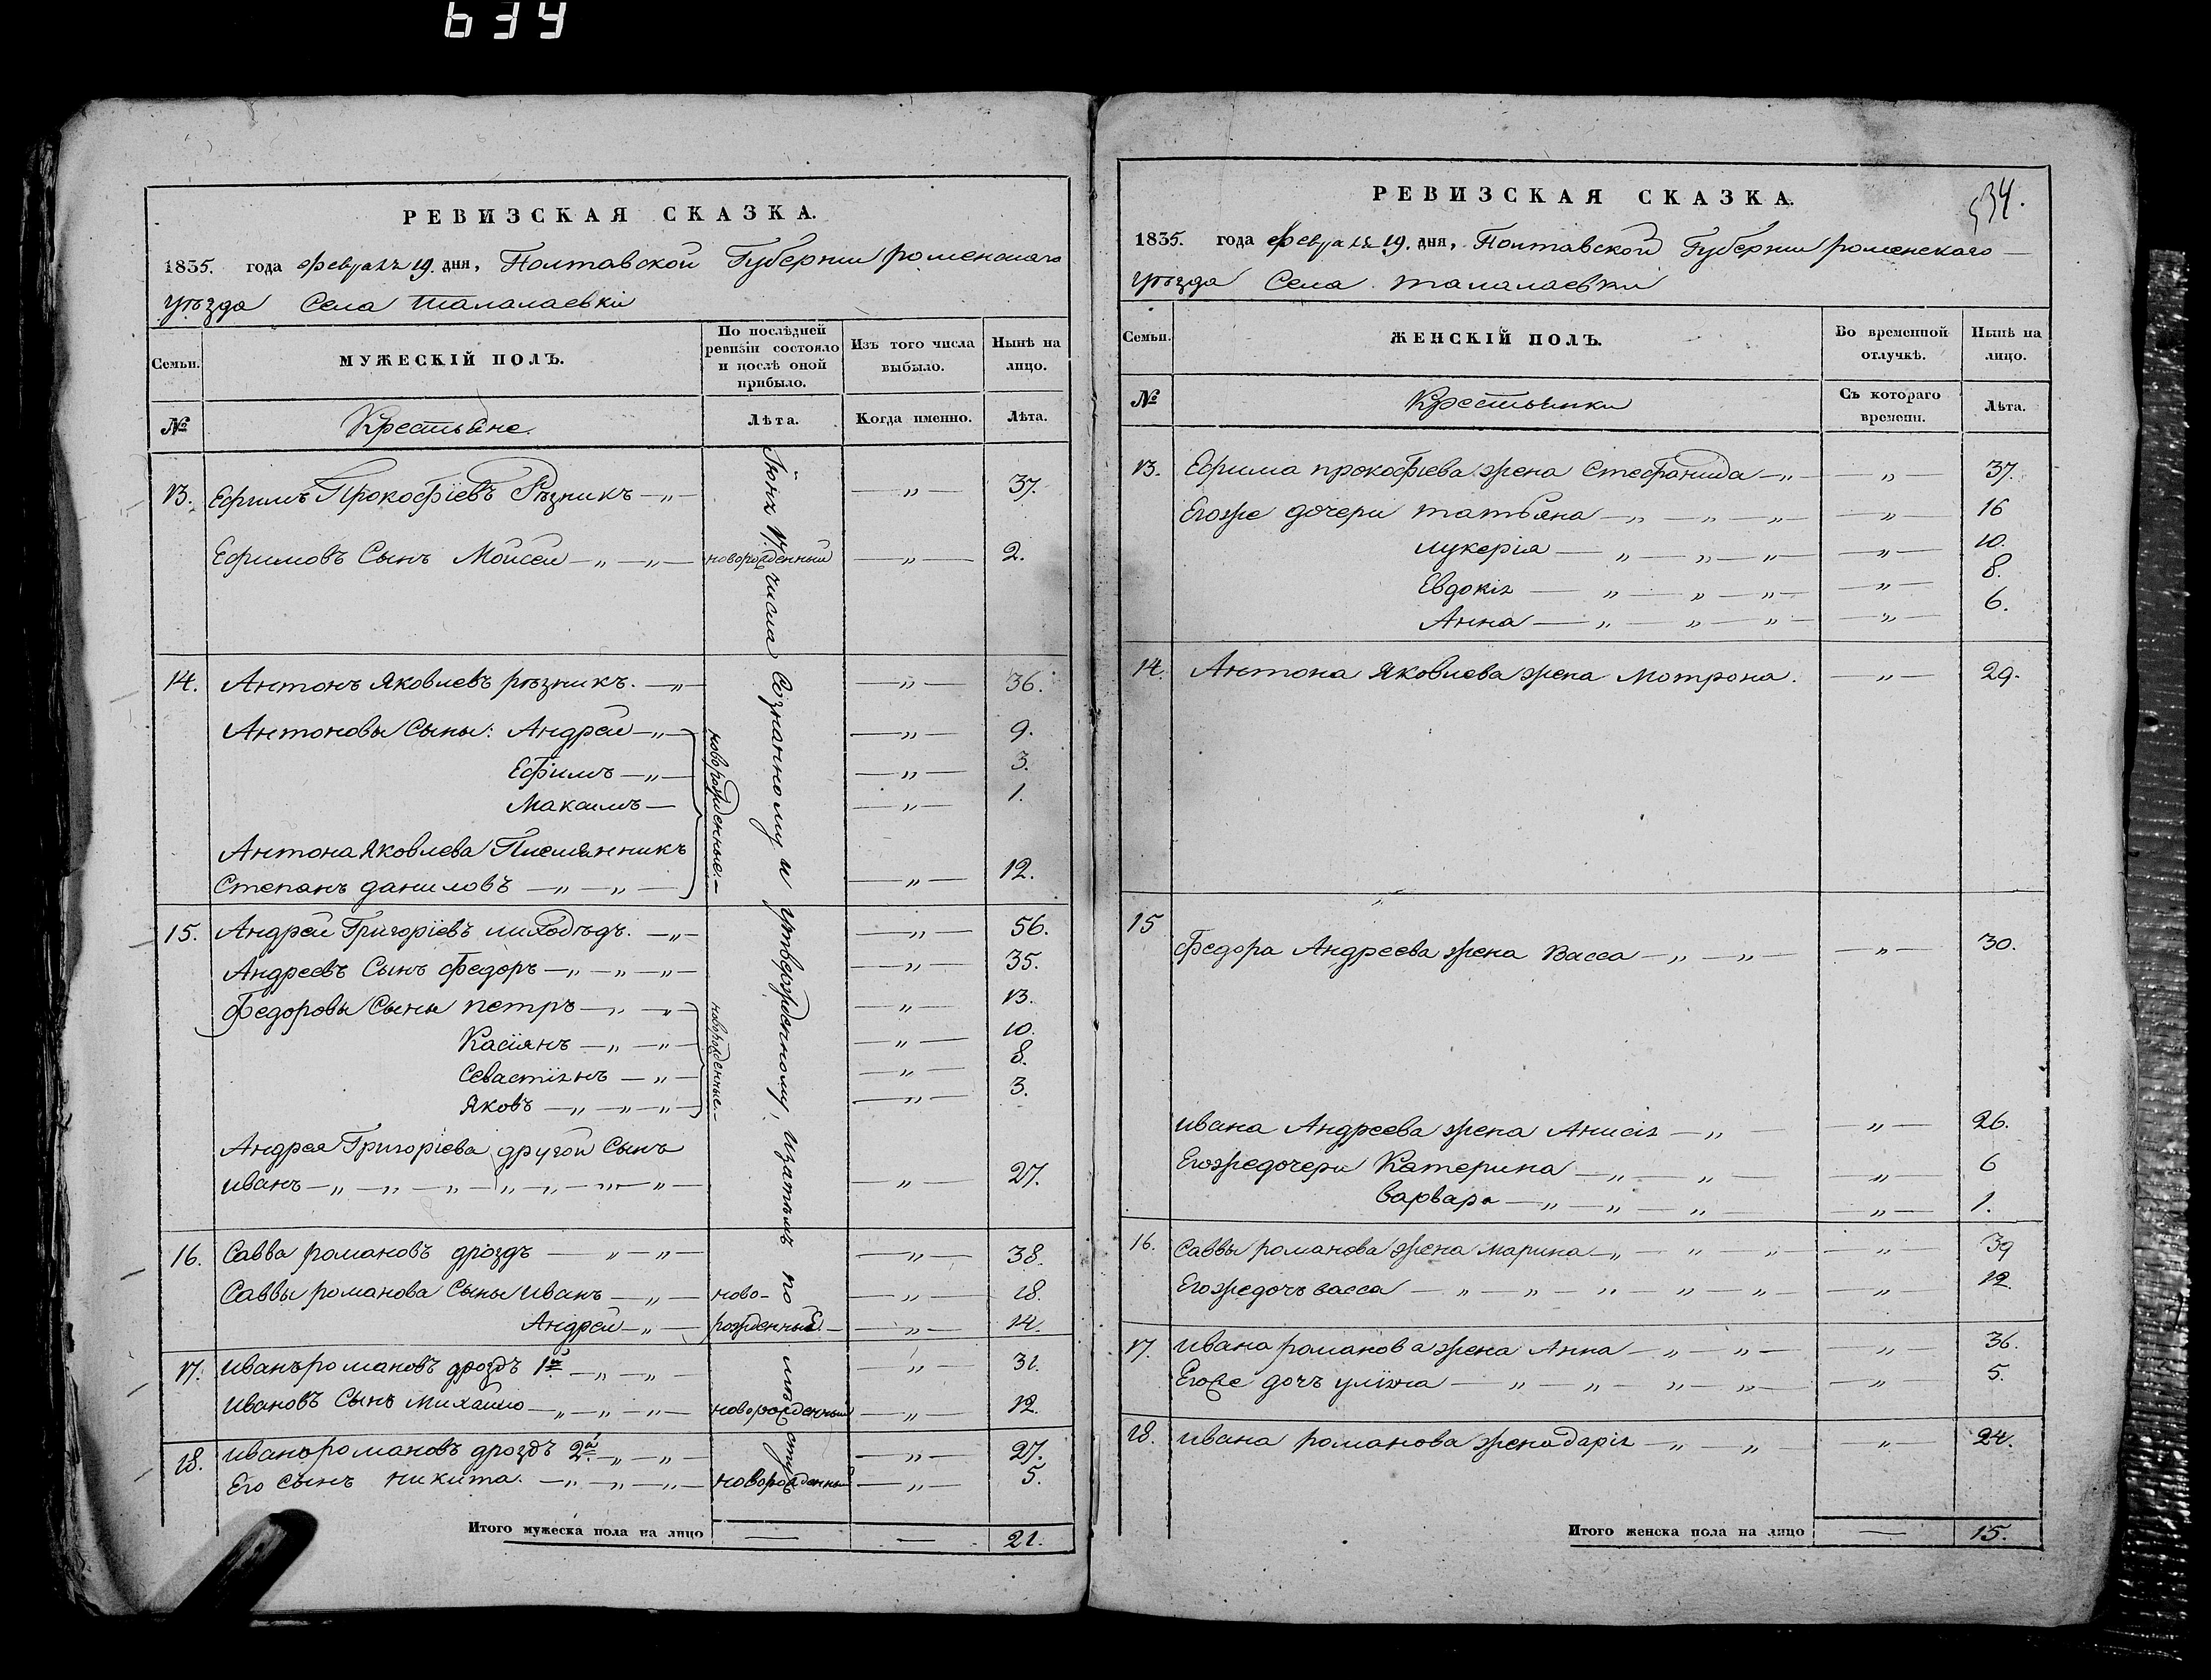 634
РЕВИЗСКАЯ СКАЗКА.
1835. года февраля 19. дня, Полтавской Губернии роменскаго
уѣзда Села талалаевки
Семьи.
МУЖЕСКІЙ ПОЛЪ.
По послѣдней ревизіи состояло и послѣ оной прибыло.
Изъ того числа выбыло.
Нынѣ на лицо.
№
Крестьяне.
Лѣта.
Когда именно.
Лѣта.
числа Сознанному и утвержденному, изятымъ по
13. Ефимъ Прокофіевъ Рѣзникъ —„— —„— 37.
Ефимовъ Сынъ Мойсей —„—„— новорожденный —„— 2.
14. Антонъ Яковлевъ рѣзникъ. —„— —„— 36.
Антоновы Сыны: Андрей —„— —„— 9.
Ефимъ —„— —„— 3.
Максимъ — —„— 1.
новорожденные.—
Антона Яковлева Племянникъ
Степанъ даниловъ —„—„— —„— 12.
15. Андрей Григоріевъ лиходѣдъ. —„— —„— 56.
Андреевъ Сынъ федоръ —„—„—„— —„— 35.
Федоровы Сыны петръ —„—„— —„— 13.
Касіянъ —„—„— —„— 10.
Севастіянъ —„— —„— 8.
Яковъ —„—„—„— —„— 3.
новорожденные.—
Андрея Григоріева другой Сынъ
иванъ —„—„—„—„—„—„—„— —„— 27.
16. Савва романовъ дроздъ —„—„— —„— 38.
Саввы романова Сыны иванъ —„— ново- —„— 18.
Андрей —„— рожденные.— —„— 14.
17. иванъ романовъ дроздъ 1й —„—„— —„— 31.
ивановъ Сынъ михайло —„—„—„— новорожденный —„— 12.
18. иванъ романовъ дроздъ 2й —„—„— —„— 27.
Его сынъ никита. —„—„—„— новорожденный —„— 5.
Итого мужеска пола на лицо — — 21.
РЕВИЗСКАЯ СКАЗКА.
534.
1835. года февраля 19. дня, Полтавской Губернии роменскаго —
уѣзда Села талалаевки
Семьи.
ЖЕНСКІЙ ПОЛЪ.
Во временной отлучкѣ.
Нынѣ на лицо.
№
Крестьянки
Съ котораго времени.
Лѣта.
13. Ефима прокофіева жена Стефанида —„— —„— 37.
Егоже дочери татьяна —„—„—„— —„— 16
лукерія —„—„—„— —„— 10.
Евдокія —„—„—„— —„— 8.
Анна —„—„—„— —„— 6.
14. Антона Яковлева жена мотрона. —„— 29.
15
Федора Андреева жена васса —„—„— —„— 30.
ивана Андреева жена Анисія —„— —„— 26.
Егожедочери Катерина —„—„— —„— 6
варвара —„—„—„— —„— 1.
16. Саввы романова жена марина —„—„—„— —„— 39
Егожедочъ васса —„—„—„—„—„— —„— 12.
17. ивана романова жена Анна —„—„— —„— 36.
Егоже дочъ уліяна —„—„—„—„— —„— 5.
18. ивана романова жена дарія —„—„— —„— 24.
Итого женска пола на лицо — 15.